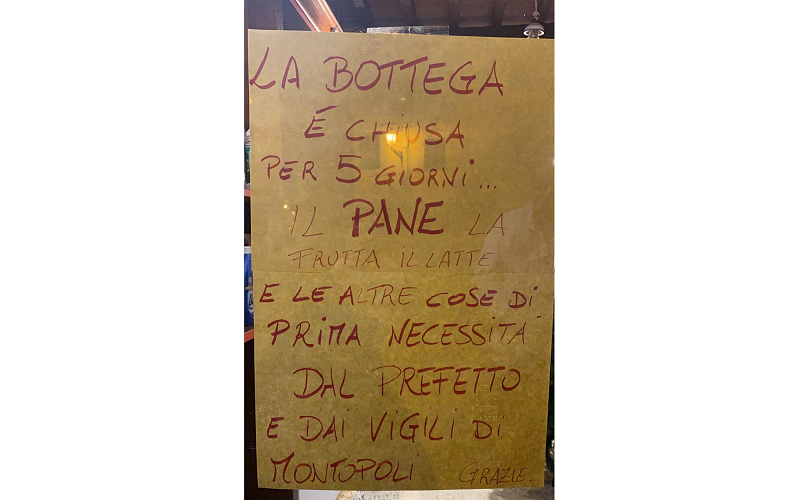 LA BOTTEGA
É CHIUSA
PER 5 GIORNI...
IL PANE LA
FRUTTA IL LATTE
E LE ALTRE COSE DI
PRIMA NECESSITÁ
DAL PREFETTO
E DAI VIGILI DI
MONTOPOLI GRAZIE.